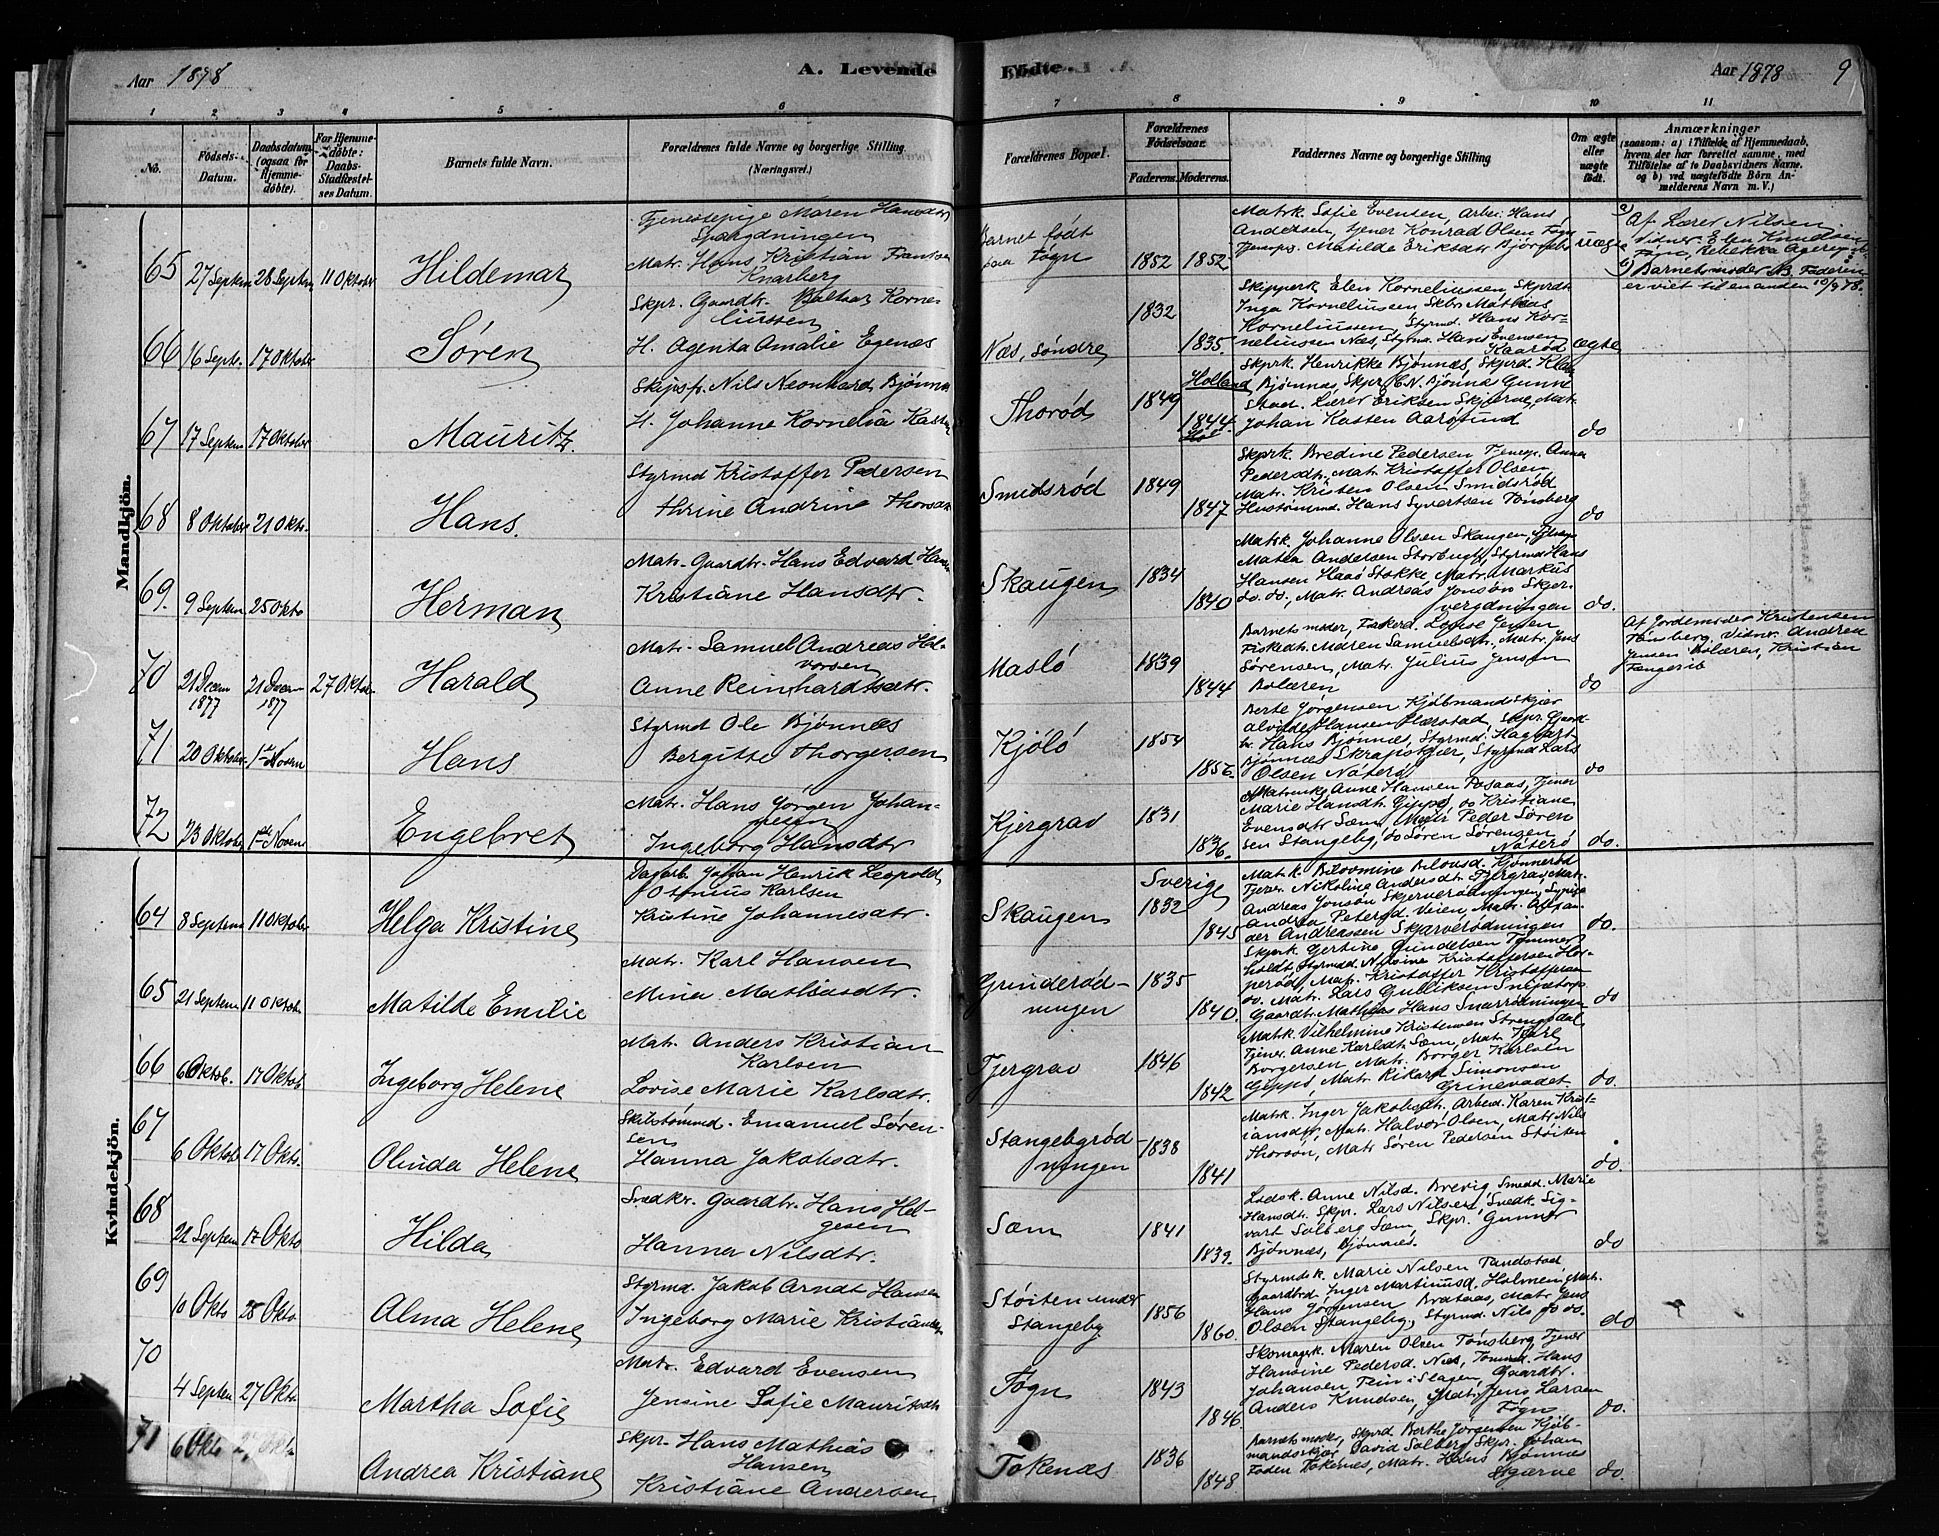 Aar 1878
A. Levende Fødte.
Aar 1878
9
1 2 3 4 5 6 7 8 9 10 11
No.
Fødsels-Datum.
Daabsdatum (ogsaa for Hjemmedøbte).
For Hjemmedøbte: Daabs-Stadfæstelses Datum.
Barnets fulde Navn.
Forældrenes fulde Navne og borgerlige Stilling. (Næringsvei.)
Forældrenes Bopæl.
Forældrenes Fødselsaar.
Faderens. Moderens.
Faddernes Navne og borgerlige Stilling
Om ægte eller uægte født.
Anmærkninger
(saasom: a) i Tilfælde af Hjemmedaab, hvem der har forrettet samme, med Tilføielse af to Daabsvidners Navne, og b) ved uægtefødte Børn Anmelderens Navn m. V.)
Mandkjön.
65 27 Septem 28 Septem 11 Oktober Hildemar
Tjenestepige Maren Hansdtr
Matr. Hans Kristian Frantsen
Knarberg
Barnet født paa Føgn
1852 1852
Matrk. Sofie Evensen, Arbei. Hans
Andersen, tjener Konrad Olsen Føgn,
Tjenesp. Matilde Eriksdtr Bjørnebo
uægte
a) Af Lærer Nilsen
Vidner. Elen Knudsen
Føgn, Rebekka
b) Barnets moder NB. Faderen
er viet til en anden 10/9 78.
66 16 Septr. 17 Oktober Søren
Skpr. Gaardtr. Baltsar Korneliussen
H. Agenta Amalie Egenæs
Næs, søndre
1832 1835
Skipperk Elen Korneliussen, Skprdt.
Inga Korneliussen Skbr. Mathias
Korneliussen, Styrmd. Hans Korneliussen Næs, Styrm. Hans Evensen
Kaarød
ægte
67 17 Septem 17 Oktober Mauritz.
Skipsfr. Nils Neonhard Bjønnes
H. Johanne Kornelia Kasten
Thorød
1849 Holland 1844
Skprk. Henrikke Bjønnæs, Skprd. Klara
Bjønnæs, Skpr. C.N. Bjønnæs Gunne
stad. Lærer Eriksen Skjerve, Mat.
Johan Kasten Aarøsund
do
68 8 Oktober 21 Okt. Hans.
Styrmd Kristoffer Pedersen
Thrine Andrine Thorsdtr
Smidsrød
1849 1847
Skprk. Bredine Pedersen Tjenesp. Anna
Pedersdtr, Matr. Kristoffer Olsen
Matr. Kristen Olsen Smidsrød
Hustømmd. Hans Syvertsen Tønsberg
do
69. 9 Septem 25 Okto Herman
Matr. Gaardtr. Hans Edvard Hansen
Kristiane Hansdtr.
Skaugen
1834 1840
Matrk. Johanne Olsen Skaugen,
Matea Andersen Storbugt, Styrmd Hans
Hansen Haasö Stokke, Matr. Markus
do. do., Matr. Andreas Jonsøn Skjerverødningen
do.
70 21 Decem 1877 21 Decem 1877 27 Oktob. Harald
Matr. Samuel Andreas Halvorsen
Anne Reinhardtsdtr.
Maslö
1839 1844
Barnets moder, Louise Jensen
Fiskedtr. Maren Samuelsdtr, Matr. Jens
Sørensen, Matr. Julius Jensen
Bolæren
do
Af Jordemoder Kristensen
Tønsberg, Vidnr. Andrea
Jensen Bolæren, Kristian
71 20 Oktober 1ste Novem Hans
Styrmd Ole Bjønnæs
Bergitte Thorgersen
Kjöló
1854 1856
Berte Jørgensen Kjöbmandskjær
Alvilde Hansen Hærstad, Skpr. Gaardtr. Hans Bjønnæs, Styrmd. Hagbart
Bjønnæs Skrapskjær, Styrmd Lars
Olsen Nöterö
do
72 23 Oktober 1ste Novem Engebret
Matr. Hans Jørgen Johannesen
Ingeborg Hansdtr
Kjergrav
1831 1836.
Anne Hansen, Tjener
Marie Hansdtr Gipö, do Kristiane
Evensdtr Sæm, Matr Peder Sørensen Stangeby, do Søren Sørensen
Nöterö
do.
Kvindekjön.
64 8 Septem 11 Oktober Helga Kristine
Dagarb. Johan Henrik Leopold
Otonius Karlsen
Kristine Johannesdtr.
Skaugen
Sverige 1832 1845
Matrk. Bilovmine
Tjener. Nikoline Andersdt. Tjergrav, Mat.
Andreas Jonsön Skjerverødningen,
Andrea Petersd. Veien, Matr. Alexander Andreassen Skjærverødningen
do.
65 21 Septem 11 Oktob. Matilde Emilie
Matr. Karl Hansen
Mina Mathiasdtr.
Grinderødningen
1835 1840.
Skprk. Gertine Gundersen Tømmerholdt, Styrmd. Nilsine Kristoffersen
Matr. Kristoffer Kristoffersen
do. Matr. Lars Gulliksen
Gaardtr. Mathias Hans Snarrødningen
do
66 6 Oktob. 17 Oktob Ingeborg Helene
Matr. Anders Kristian
Karlsen
Lovise Marie Karlsdtr.
Tjergrav
1846 1842
Matrk. Vilhelmine Kristensen Strengsdal
Tjener. Anne Karlsdt. Sæm, Mat. Karl
Borgersen, Matr. Borger Karlsen
Gippö, Matr Rikard Simonsen
Grinevadet.
do.
67 6 Oktob 17 Okto. Olinda Helene
Skibstømmd. Emanuel Sørensen
Hanna Jakobsdtr.
Stangebyrødningen
1838 1841
Matrk. Inger Jakobsdt. Arbeid. Karen Kristiansdtr, Matr. Halvor Olsen, Matr Nils
Thorsøn, Matr Søren Pedersen Støiten
do.
68 21 Septem 17 Okto Hilda
Smedkr. Gaardtr. Hans Helgesen
Hanna Nilsdtr.
Sæm
1841 1839.
Lodsk. Anne Nilsd. Brevig Smedd. Marie
Hansdtr. Skpr. Lars Nilsen, Smedk. Sigvart Solberg Sæm, Skpr. Gunner
Bjønnæs, Bjønnæs.
do
69 10 Okto 28 Okto Alma Helene
Styrmd. Jakob Arndt Hansen
Ingeborg Marie Kristiansen
Støiten under Stangeby
1856 1860.
Styrmdsk. Marie Nilsen Tandstad
Gaardbrd. Inger Martinusd. Holmen, Mat.
Hans Jørgensen Brataas, Matr Jens
Olsen Stangeby, Styrmd. Nils do do.
do
70 4 Septem 27 Okto. Martha Sofie
Matr. Edvard Evensen
Jensine Sofie Mauritsdtr
Føgn
1843 1846
Skomagrk. Maren Olsen Tønsberg, Tjener
Hansine Pedersd. Næs, Tømmd. Hans
Johansen Tein i Slagen, Gaardtr.
Anders Knudsen, Matr Jens Larsen
Føgn
do.
71 6 Okto 27 Okto Andrea Kristiane
Skpr. Hans Mathias
Hansen
Kristiane Andersen
Tokenæs
1836 1848
Barnets moder, Skprd Berthe Jørgensen Kjöbmandskjær, David Solberg Skpr. Johan
Foden Tokenæs, Matr. Hans Bjønnæs
Skjærve
do.